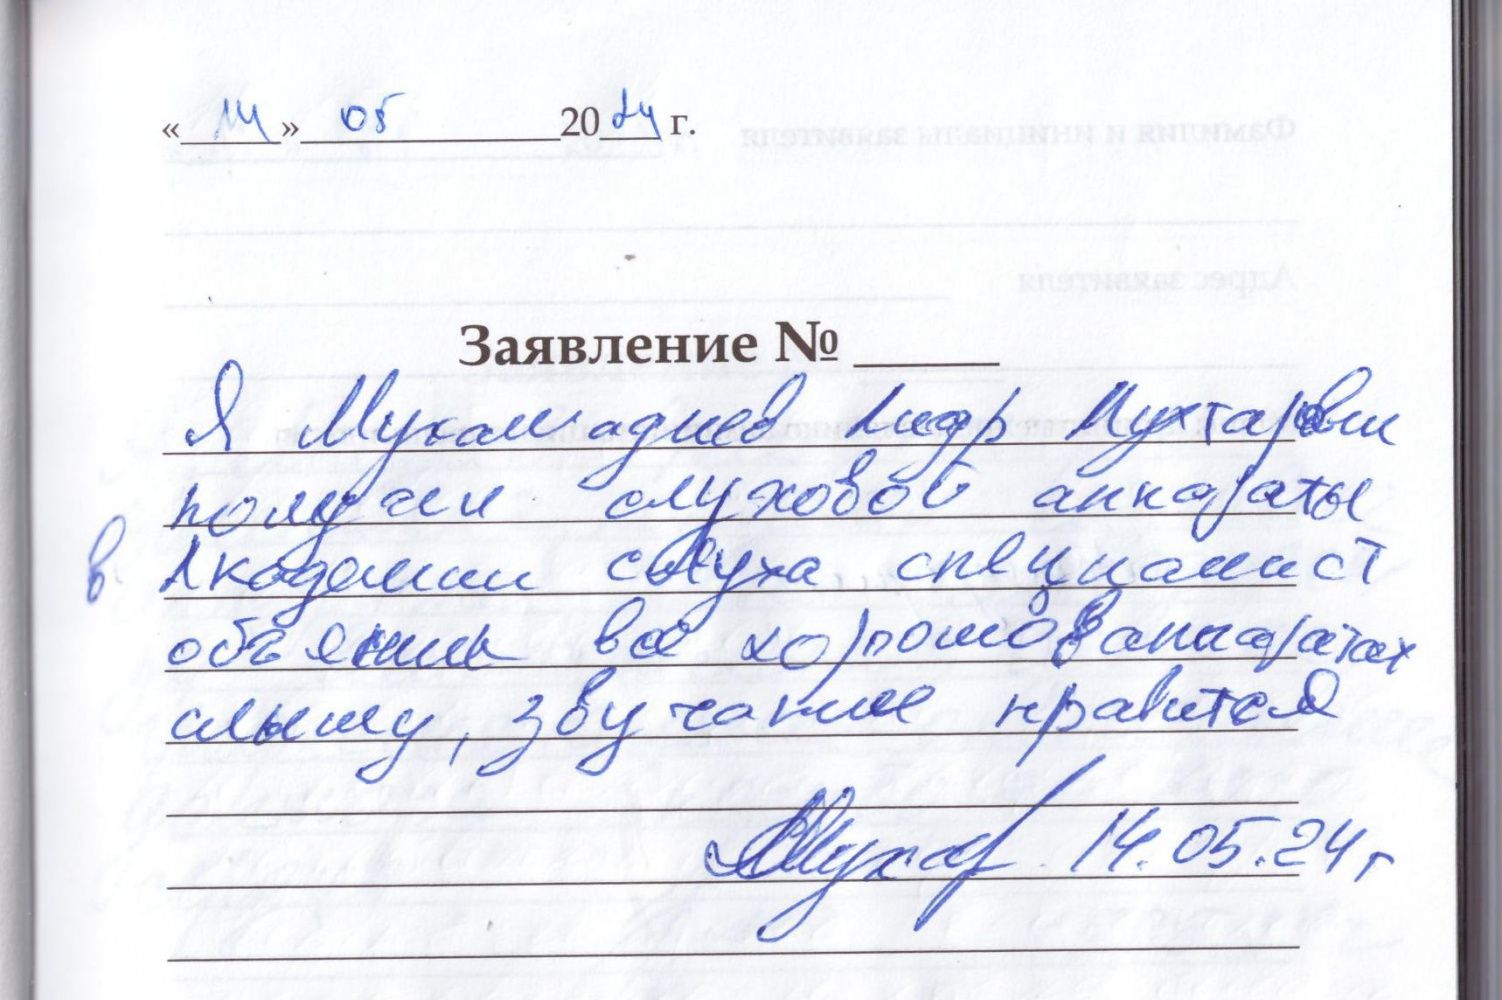 «14» 05 2024 г.
Заявление № ____
Я Мухамадиев Мухтарови
получил слуховой аппараты
в Академии слуха специалист
объяснил все хорошо в аппаратах
слышу, звучание нравится
14.05.24 г